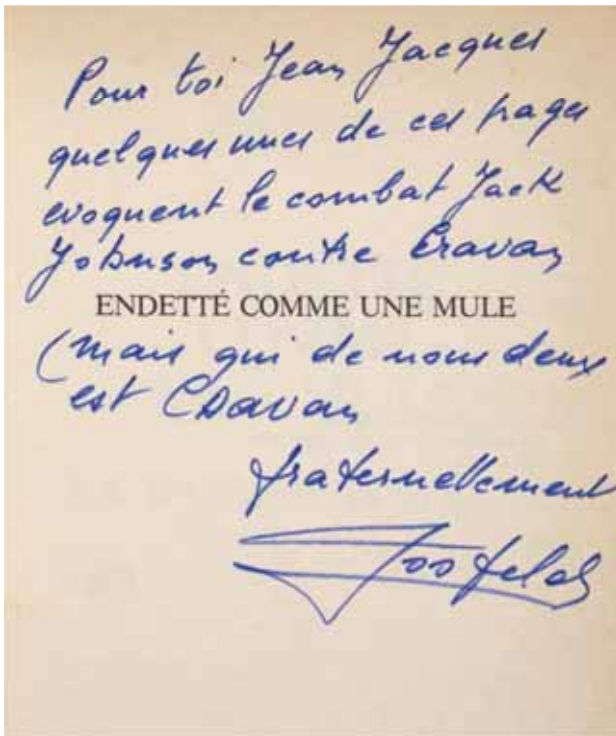 Pour toi Jean Jacques
quelques unes de ces pages
evoquent le combat Jack
Johnson contre Cravan
ENDETTÉ COMME UNE MULE
(mais qui de nous deux
est Cravan
fraternellement
Losfeld